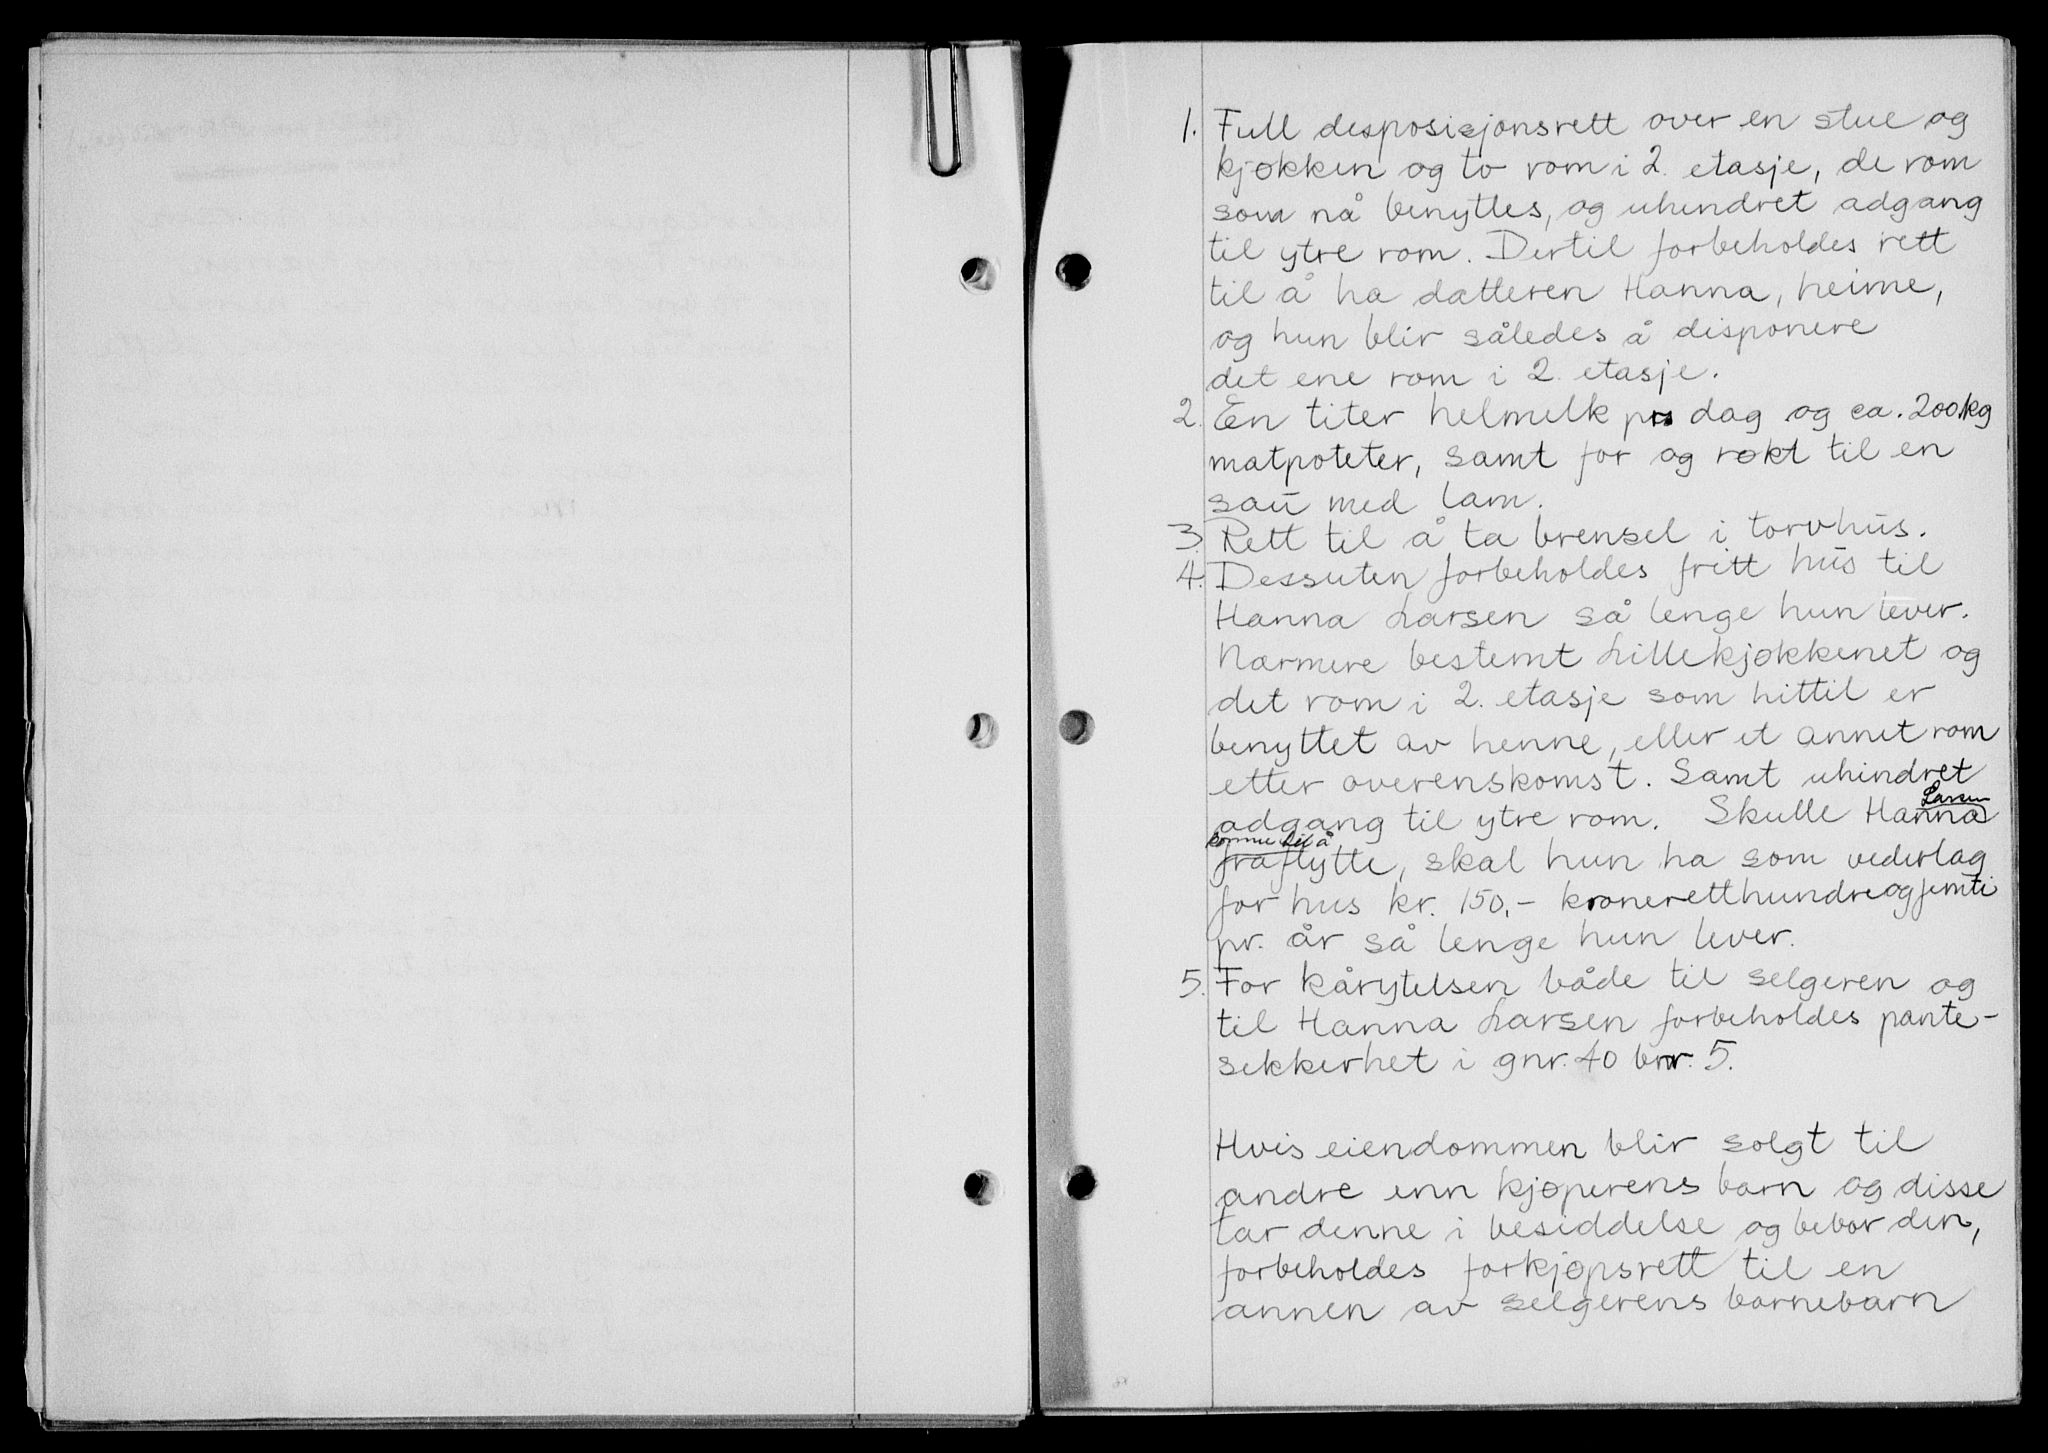 1. Full desposisjonsrett over en stue og
kjøkken og to rom i 2. etasje, de rom
som nå benyttes, og uhindret adgang
til ytre rom. Dertil forbeholdes rett
til å ha datteren Hanna, heime,
og hun blir således å disponere
det ene rom i 2. etasje.
2. En liter helmelk pr. dag og ca. 200 kg
matpoteter, samt for og røkt til en
sau med lam.
3. Rett til å ta brensel i torvhus.
4. Dessuten forbeholdes fritt hus til
Hanna Larsen så lenge hun lever.
Nærmere bestemt Lillekjøkkenet og
det rom i 2. etasje som hittil er
benyttet av henne, eller et annet rom
etter overenskomst. Samt uhindret
adgang til ytre rom. Skulle Hanna Larsen
komme til å
fraflytte, skal hun ha som vederlag
for hus kr. 150,- kroneretthundreogfemti
pr. år så lenge hun lever.
5. For kårytelsen både til selgeren og
til Hanna Larsen forbeholdes pante-
sikkerhet i gnr. 40 bnr. 5.
Hvis eiendommen blir solgt til
andre enn kjøperens barn og disse
tar denne i besiddelse og bebor den,
forbeholdes forkjøpsrett til en
annen av selgerens barnebarn